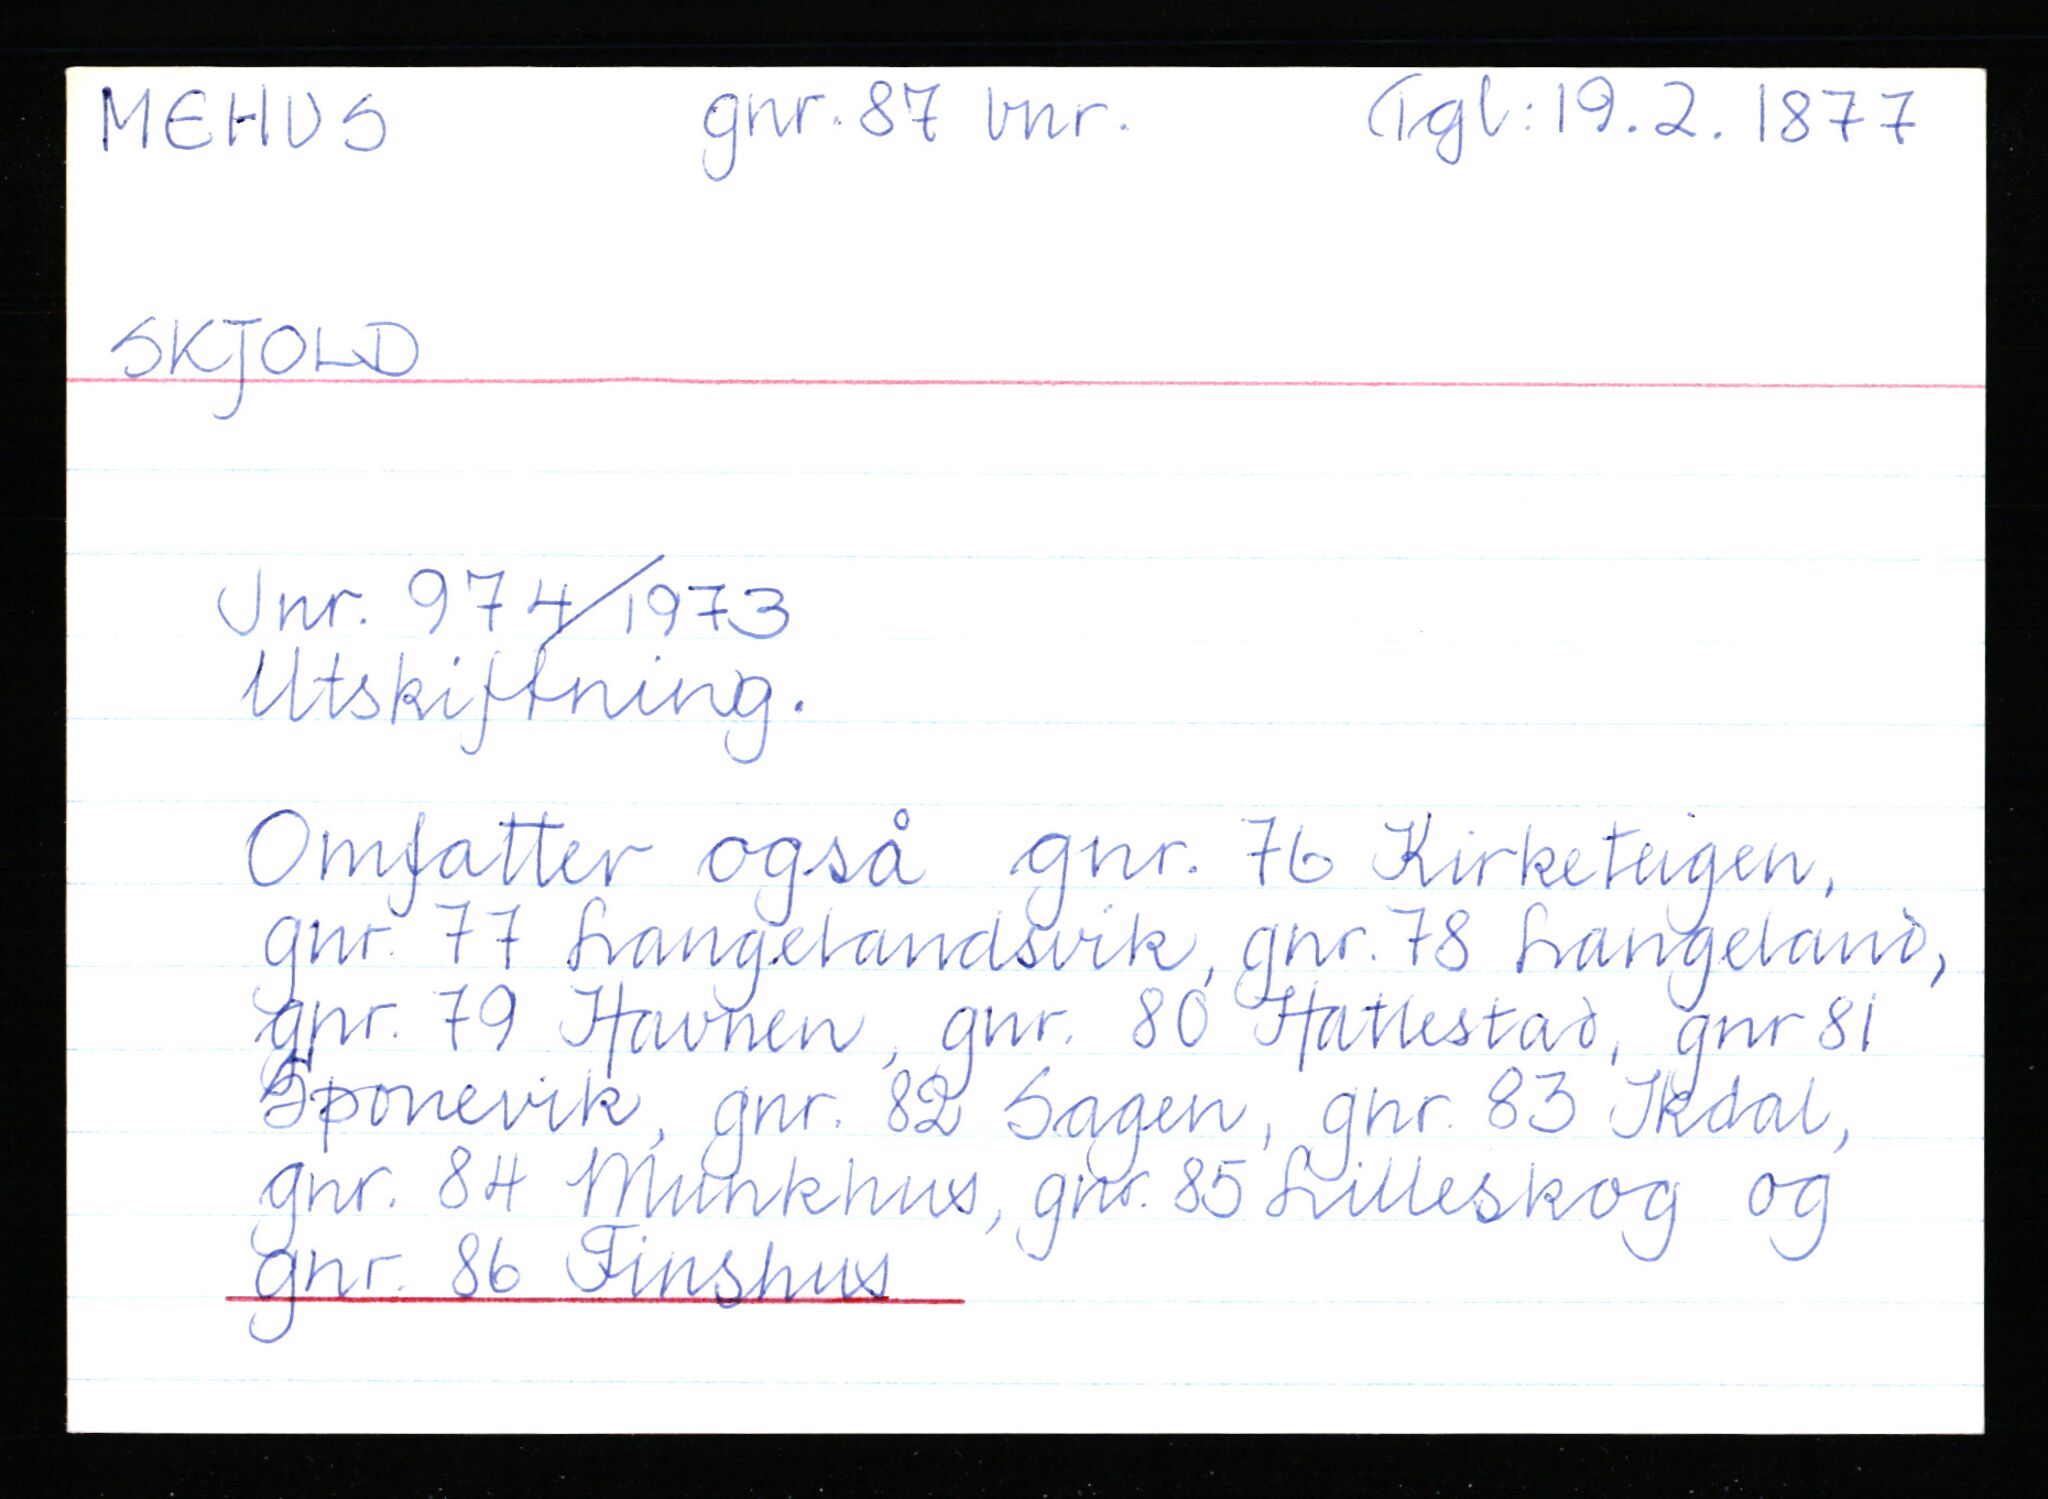 MEHUS gnr. 87 bnr. Tgl: 19. 2. 1877
SKJOLD
Jnr. 974/1973
Utskiftning.
Omfatter også gnr. 76 Kirketeigen,
gnr. 77 Langelandsvik, gnr. 78 Langeland,
gnr. 79 Havnen, gnr. 80 Hatlestad, gnr 81
Sponevik, gnr. 82 Sagen, gnr. 83 Ikdal,
gnr. 84 Munkhus, gnr. 85 Lilleskog og
gnr. 86 Finshus